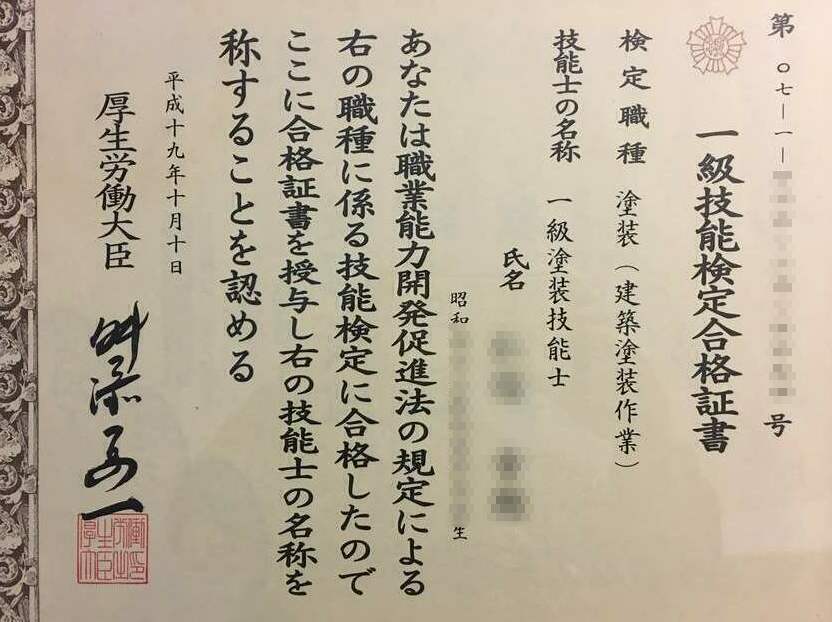 第〇七-一- 号
一級技能検定合格証書
検定職種 塗装(建築塗装作業)
技能士の名称 一級塗装技能士
氏名
昭和 生
あなたは職業能力開発促進法の規定による
右の職種に係る技能検定に合格したので
ここに合格証書を授与し右の技能士の名称を
称することを認める
平成十九年十月十日
厚生労働大臣 舛添要一